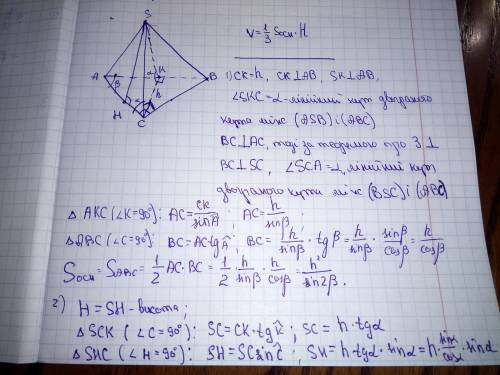 S
A
B
C
H
K
β
α
h
V = 1/3 Sосн · H
1) CK = h, CK ⊥ AB, SK ⊥ AB,
∠SKC = α - лінійний кут двогранного
кута між (ASB) і (ABC)
BC ⊥ AC, тоді за теоремою про 3 ⊥
BC ⊥ SC, ∠SCA = α, лінійний кут
двогранного кута між (BSC) і (ABC)
△ AKC (∠K = 90°): AC = CK/sinA ; AC = h/sinβ ;
△ ABC (∠C = 90°): BC = AC·tgA ; BC = h/sinβ · tgβ = h/sinβ · sinβ/cosβ = h/cosβ
Sосн = S_ABC = 1/2 AC · BC = 1/2 · h/sinβ · h/cosβ = h²/sin2β .
2) H = SH - висота;
△ SCK (∠C = 90°): SC = CK · tgK ; SC = h · tgα
△ SHC (∠H = 90°): SH = SC sinC ; SH = h · tgα · sinα = h · sinα/cosα · sinα